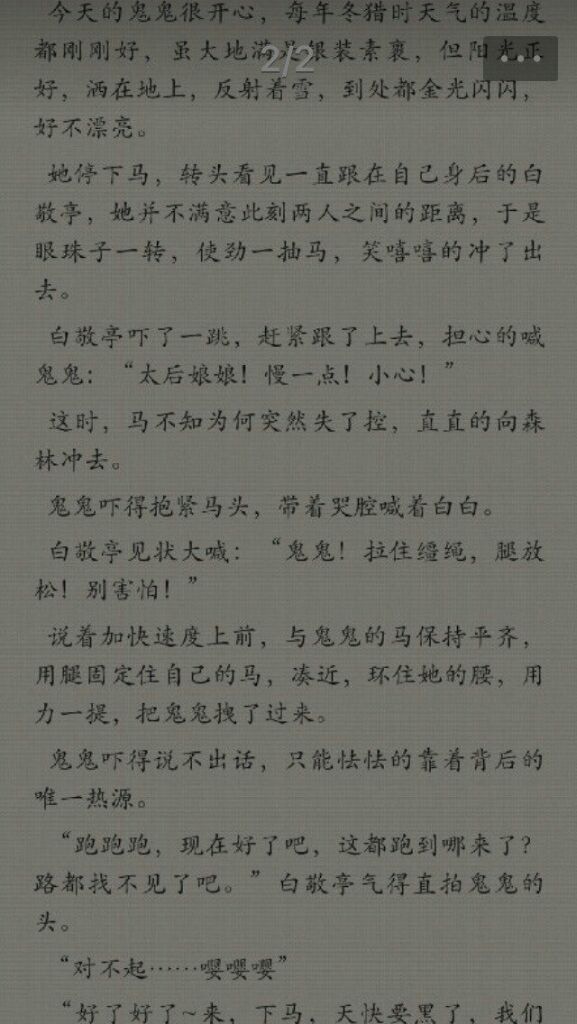 今天的鬼鬼很开心，每年冬猎时天气的温度
都刚刚好，虽大地满是银装素裹，但阳光正
2/2
好，洒在地上，反射着雪，到处都金光闪闪，
好不漂亮。
她停下马，转头看见一直跟在自己身后的白
敬亭，她并不满意此刻两人之间的距离，于是
眼珠子一转，使劲一抽马，笑嘻嘻的冲了出
去。
白敬亭吓了一跳，赶紧跟了上去，担心的喊
鬼鬼：“太后娘娘！慢一点！小心！”
这时，马不知为何突然失了控，直直的向森
林冲去。
鬼鬼吓得抱紧马头，带着哭腔喊着白白。
白敬亭见状大喊：“鬼鬼！拉住缰绳，腿放
松！别害怕！”
说着加快速度上前，与鬼鬼的马保持平齐，
用腿固定住自己的马，凑近，环住她的腰，用
力一提，把鬼鬼拽了过来。
鬼鬼吓得说不出话，只能怯怯的靠着背后的
唯一热源。
“跑跑跑，现在好了吧，这都跑到哪来了？
路都找不见了吧。”白敬亭气得直拍鬼鬼的
头。
“对不起……嘤嘤嘤”
“好了好了~来，下马，天快要黑了，我们